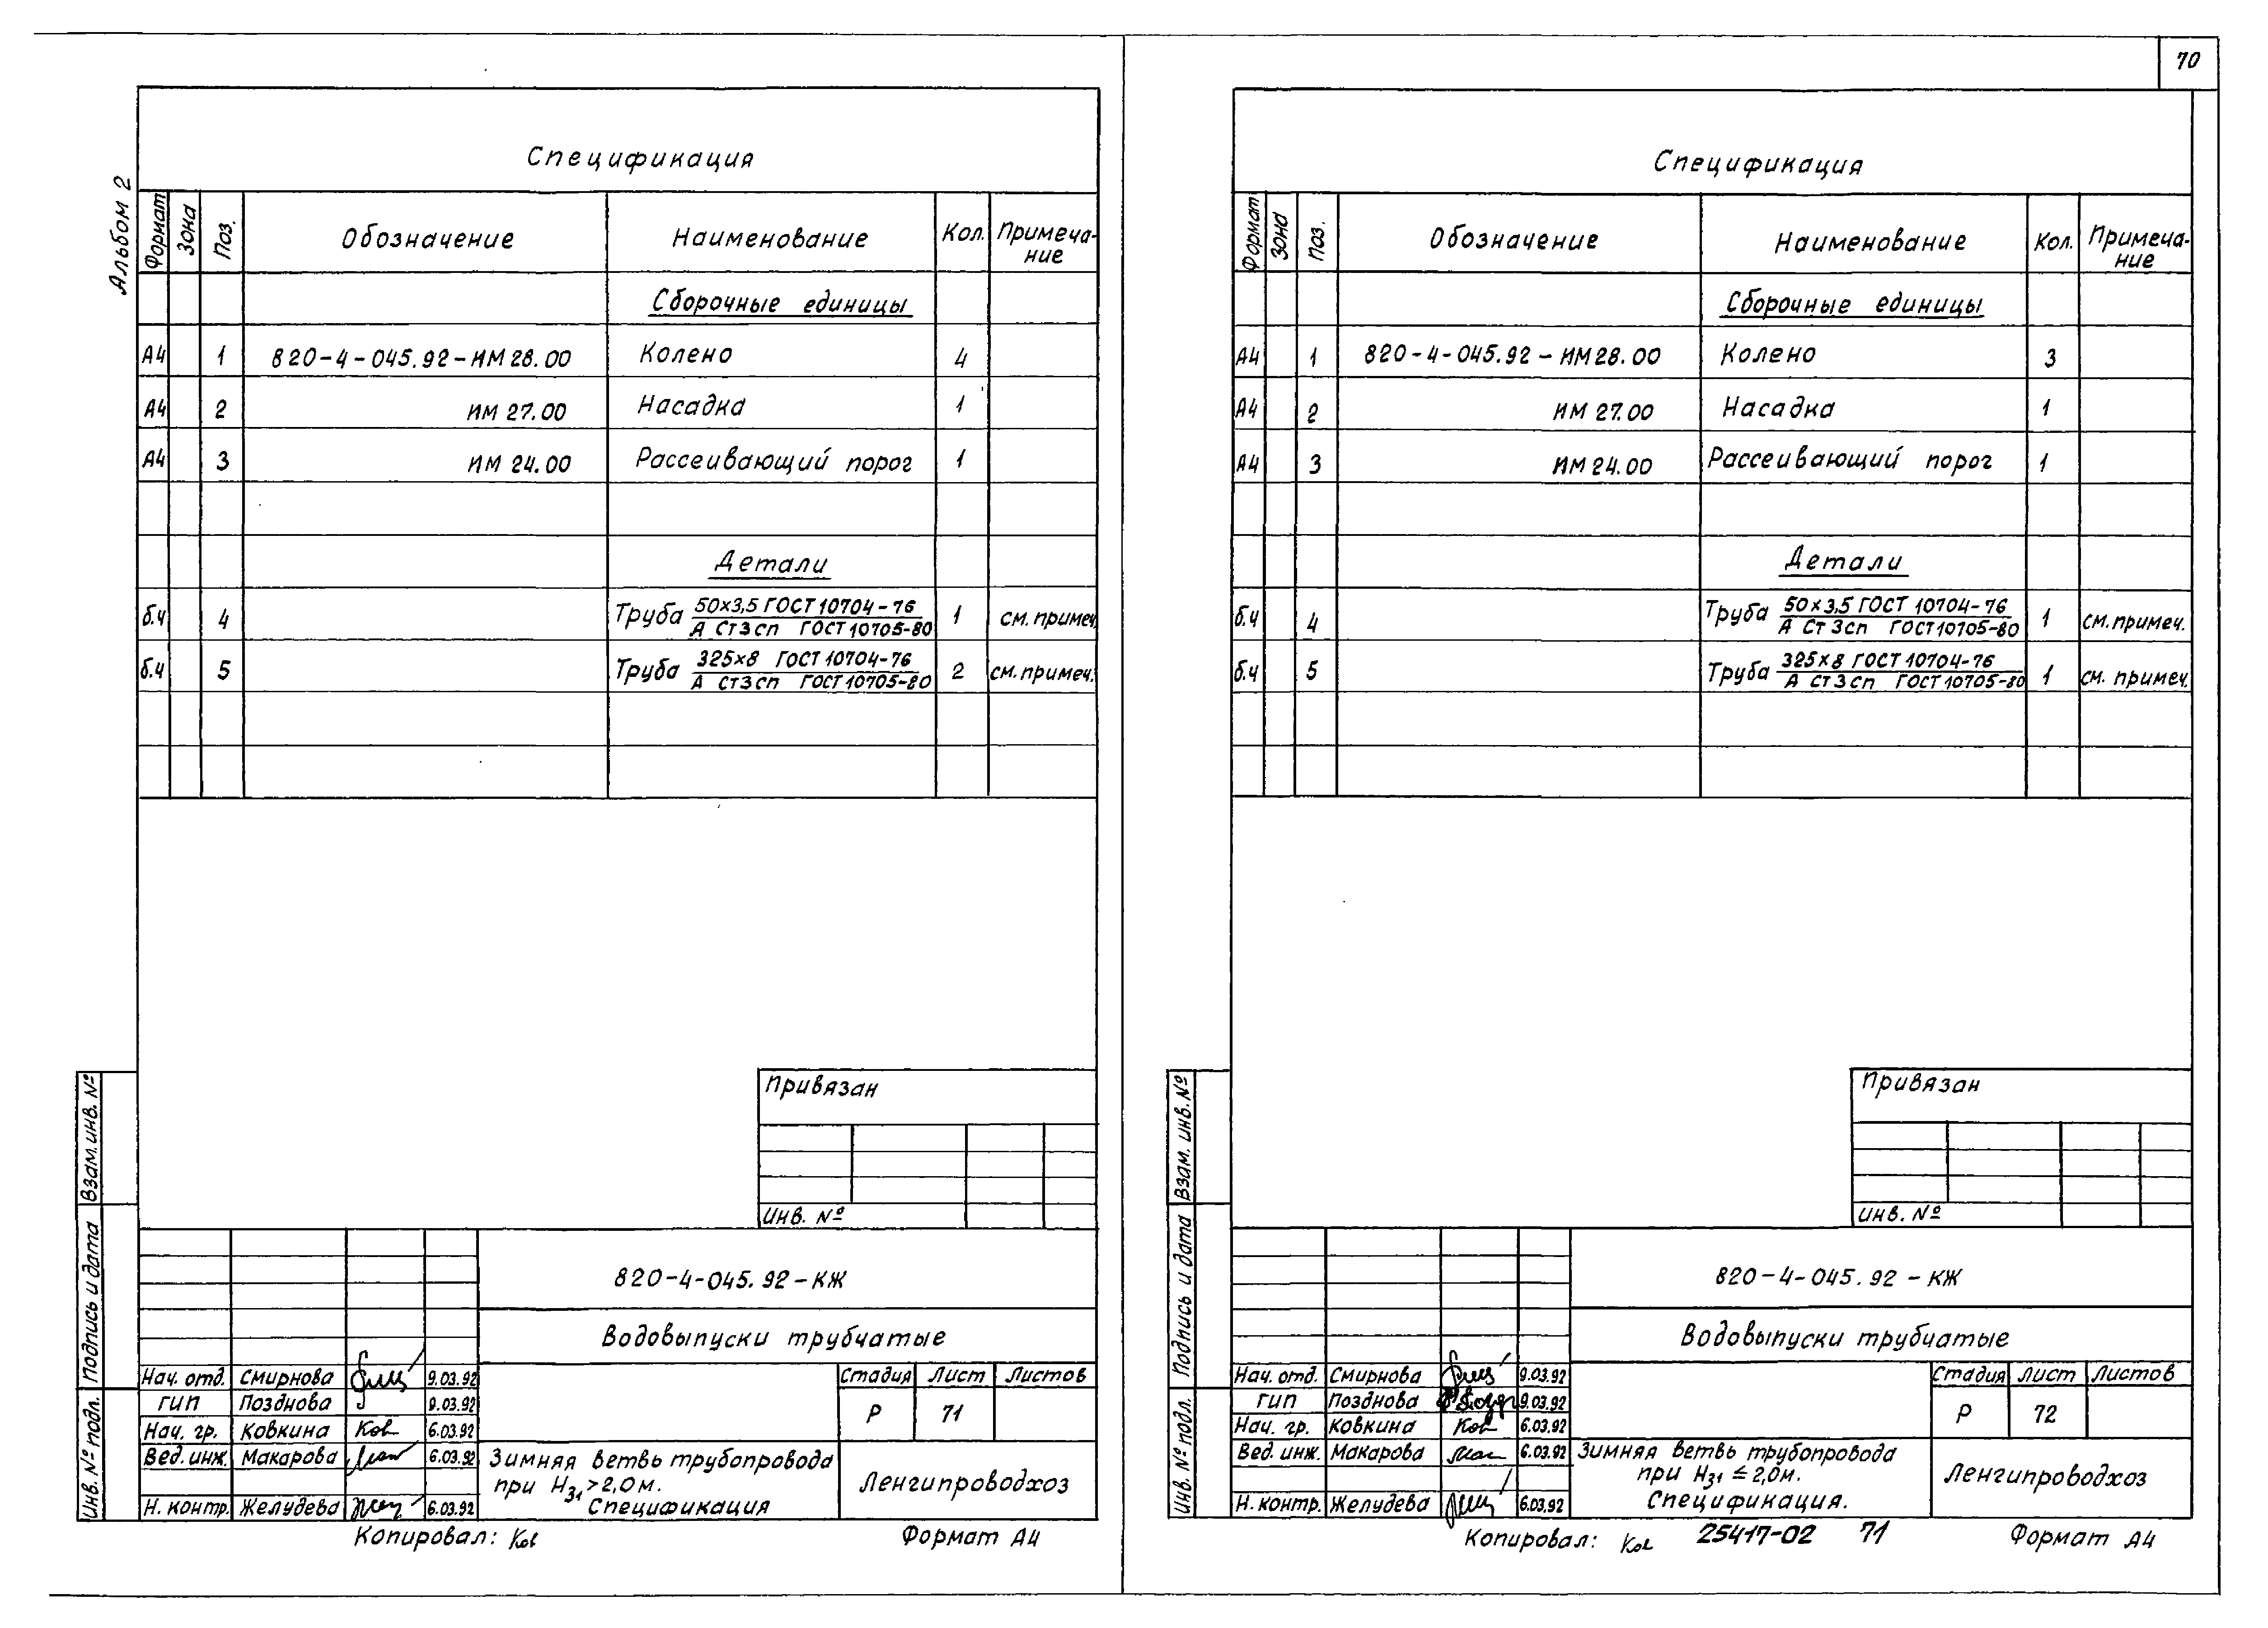 70
Альбом 2
Спецификация
Формат Зона Поз. Обозначение Наименование Кол. Примеча-
ние
Сборочные единицы
А4 1 820-4-045.92-ИМ 28.00 Колено 4
А4 2 ИМ 27.00 Насадка 1
А4 3 ИМ 24.00 Рассеивающий порог 1
Детали
б.ч 4 Труба 50×3,5 ГОСТ 10704-76 1 см. примеч.
А Ст3сп ГОСТ 10705-80
б.ч 5 Труба 325×8 ГОСТ 10704-76 2 см. примеч.
А Ст3сп ГОСТ 10705-80
Привязан
Инв. №
Взам. инв. №
Подпись и дата
Инв. № подл.
820-4-045.92-КЖ
Водовыпуски трубчатые
Нач. отд. Смирнова 9.03.92
ГИП Позднова 9.03.92
Нач. гр. Ковкина Ков 6.03.92
Вед. инж. Макарова 6.03.92
Н. контр. Желудева 6.03.92
Стадия Лист Листов
Р 71
Зимняя ветвь трубопровода
при Н31 > 2,0 м.
Спецификация
Ленгипроводхоз
Копировал: Ков Формат А4
Спецификация
Формат Зона Поз. Обозначение Наименование Кол. Примеча-
ние
Сборочные единицы
А4 1 820-4-045.92-ИМ 28.00 Колено 3
А4 2 ИМ 27.00 Насадка 1
А4 3 ИМ 24.00 Рассеивающий порог 1
Детали
б.ч 4 Труба 50×3,5 ГОСТ 10704-76 1 см. примеч.
А Ст3сп ГОСТ 10705-80
б.ч 5 Труба 325×8 ГОСТ 10704-76 1 см. примеч.
А Ст3сп ГОСТ 10705-80
Привязан
Инв. №
Взам. инв. №
Подпись и дата
Инв. № подл.
820-4-045.92-КЖ
Водовыпуски трубчатые
Нач. отд. Смирнова 9.03.92
ГИП Позднова 9.03.92
Нач. гр. Ковкина Ков 6.03.92
Вед. инж. Макарова 6.03.92
Н. контр. Желудева 6.03.92
Стадия Лист Листов
Р 72
Зимняя ветвь трубопровода
при Н31 ≤ 2,0 м.
Спецификация.
Ленгипроводхоз
Копировал: Ков 25417-02 71 Формат А4